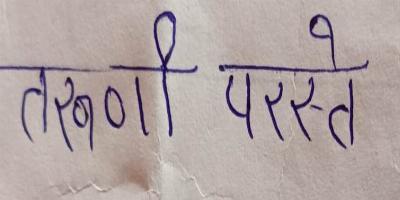 तरूणी परस्ते